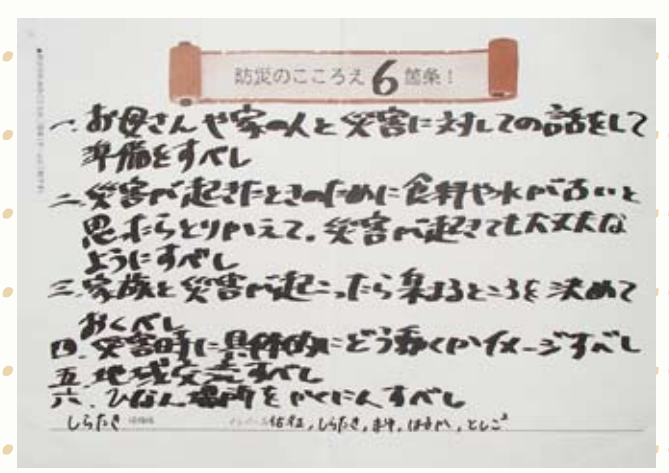 防災のこころえ6箇条!
一、お母さんや家の人と災害に対しての話をして
準備をすべし
二、災害が起きたときのために食料や水が古いと
思ったらとりかえて。災害が起きても大丈夫な
ようにすべし
三、家族と災害が起こったら集まるところを決めて
おくべし
四、災害時に具体的にどう動くかイメージすべし
五、地域交流すべし
六、ひなん場所をかくにんすべし
しらたき しらたき, はるか, としこ